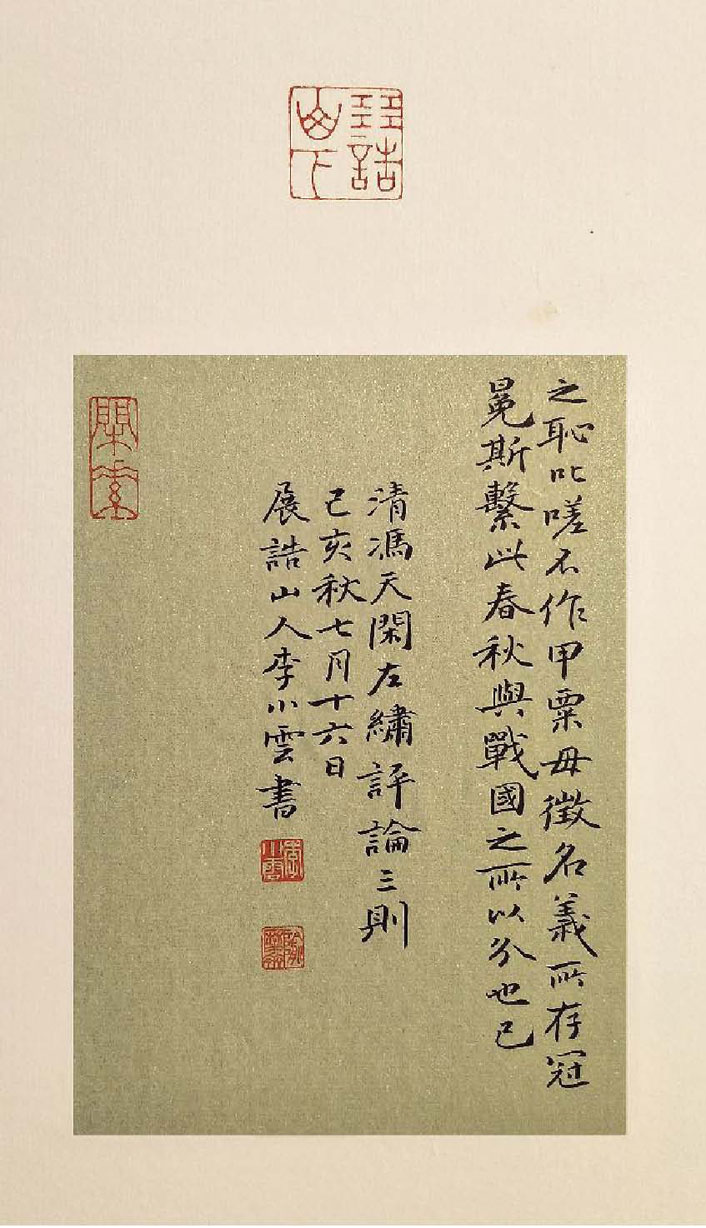 展誥山下
之恥叱嗟不作甲粟毋徵名義所存冠
冕斯繫此春秋與戰國之所以分也已
清馮天閑左繡評論三則
己亥秋七月十六日
展誥山人李小雲書
李小雲